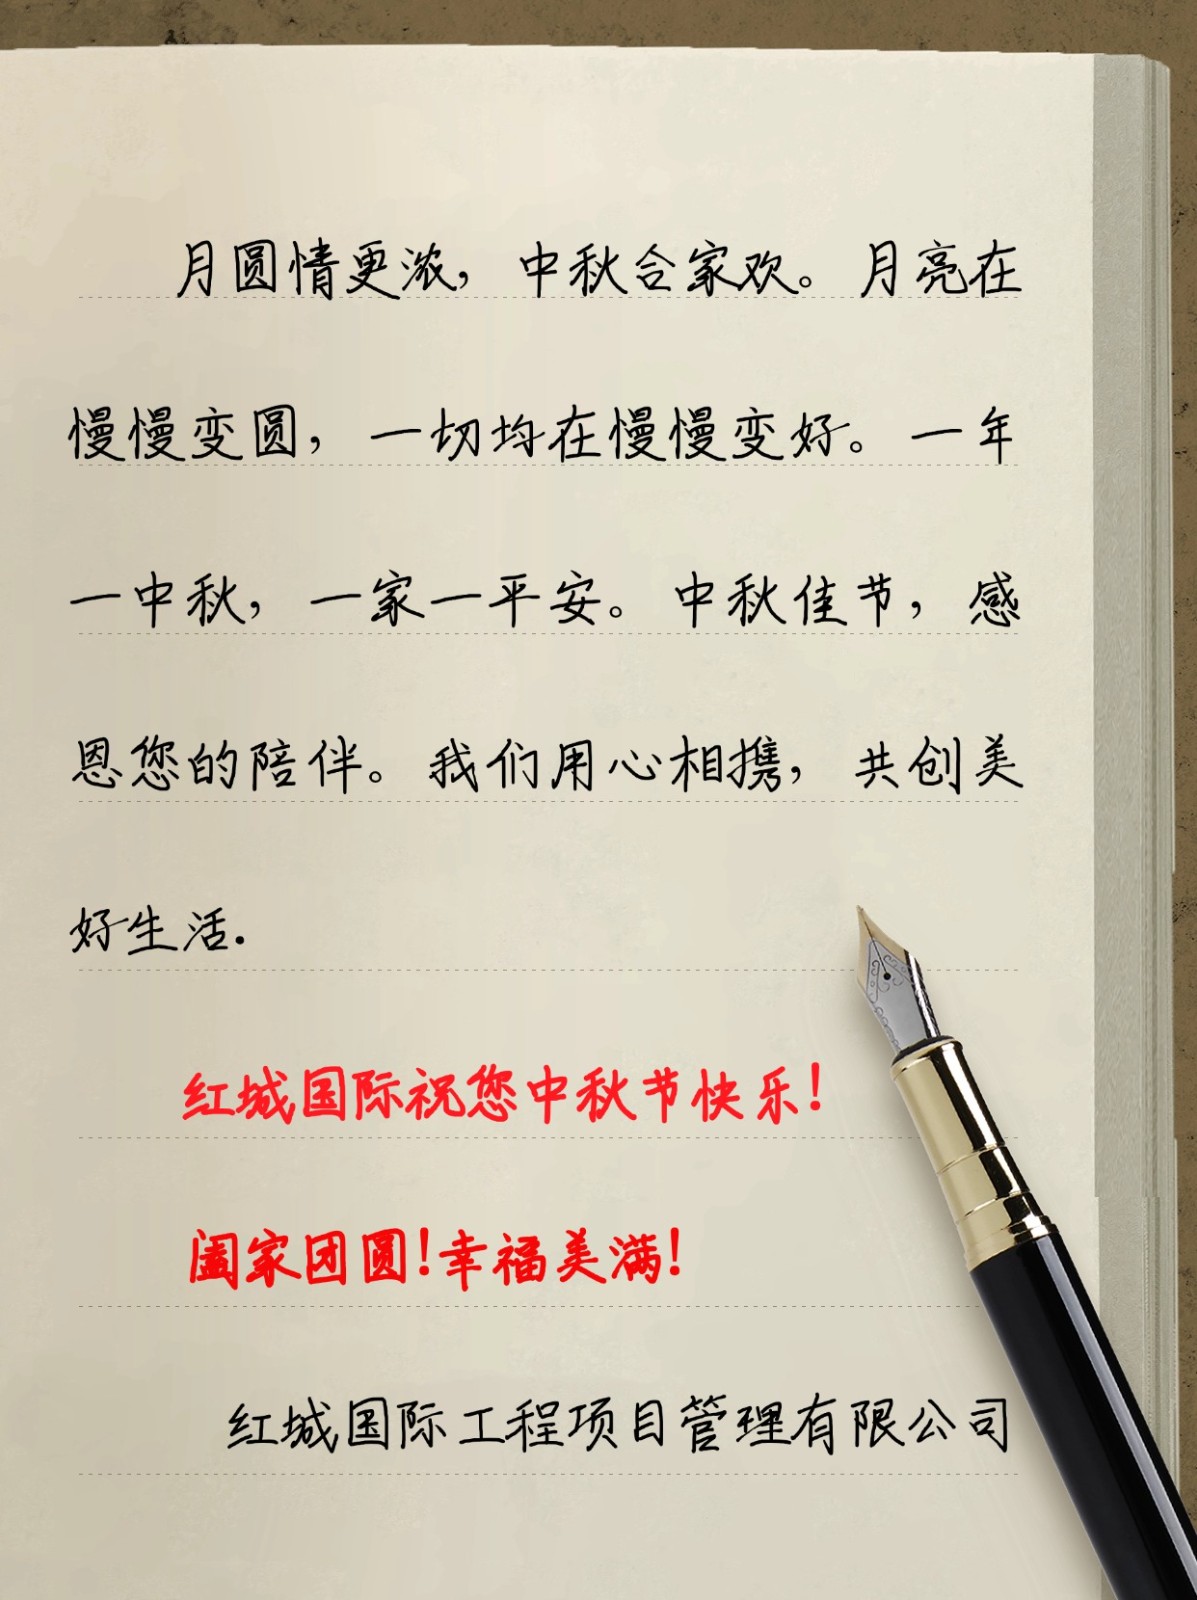 月圆情更浓，中秋合家欢。月亮在
慢慢变圆，一切均在慢慢变好。一年
一中秋，一家一平安。中秋佳节，感
恩您的陪伴。我们用心相携，共创美
好生活.
红城国际祝您中秋节快乐!
阖家团圆!幸福美满!
红城国际工程项目管理有限公司